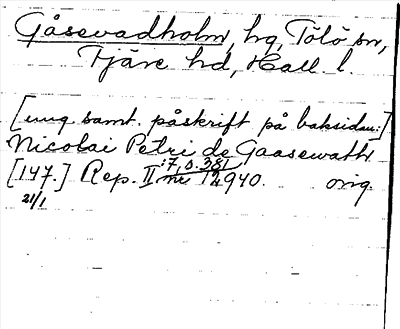 Gåsevadholm, hg, Tölö sn,
Fjäre hd, Hall. l.
[ung. samt. påskrift på baksidan:]
Nicolai Petri de Gaasewath
[147.] Rep. II:7, s. 381 nr 12940. orig.
21/1